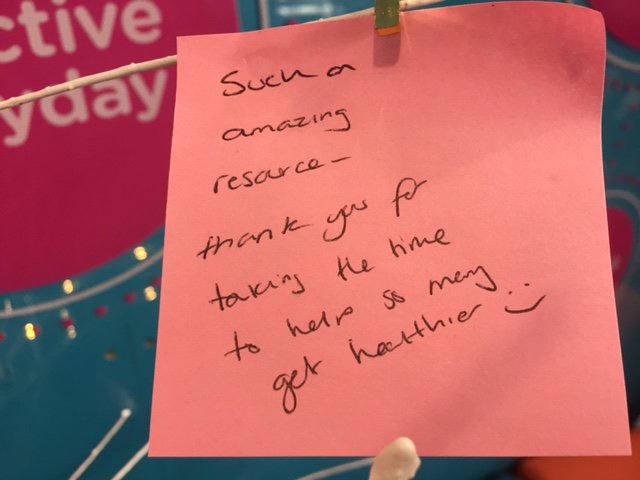 ctive
yday
Such a
amazing
resource-
thank you for
taking the time
to help so many
get healthier :)